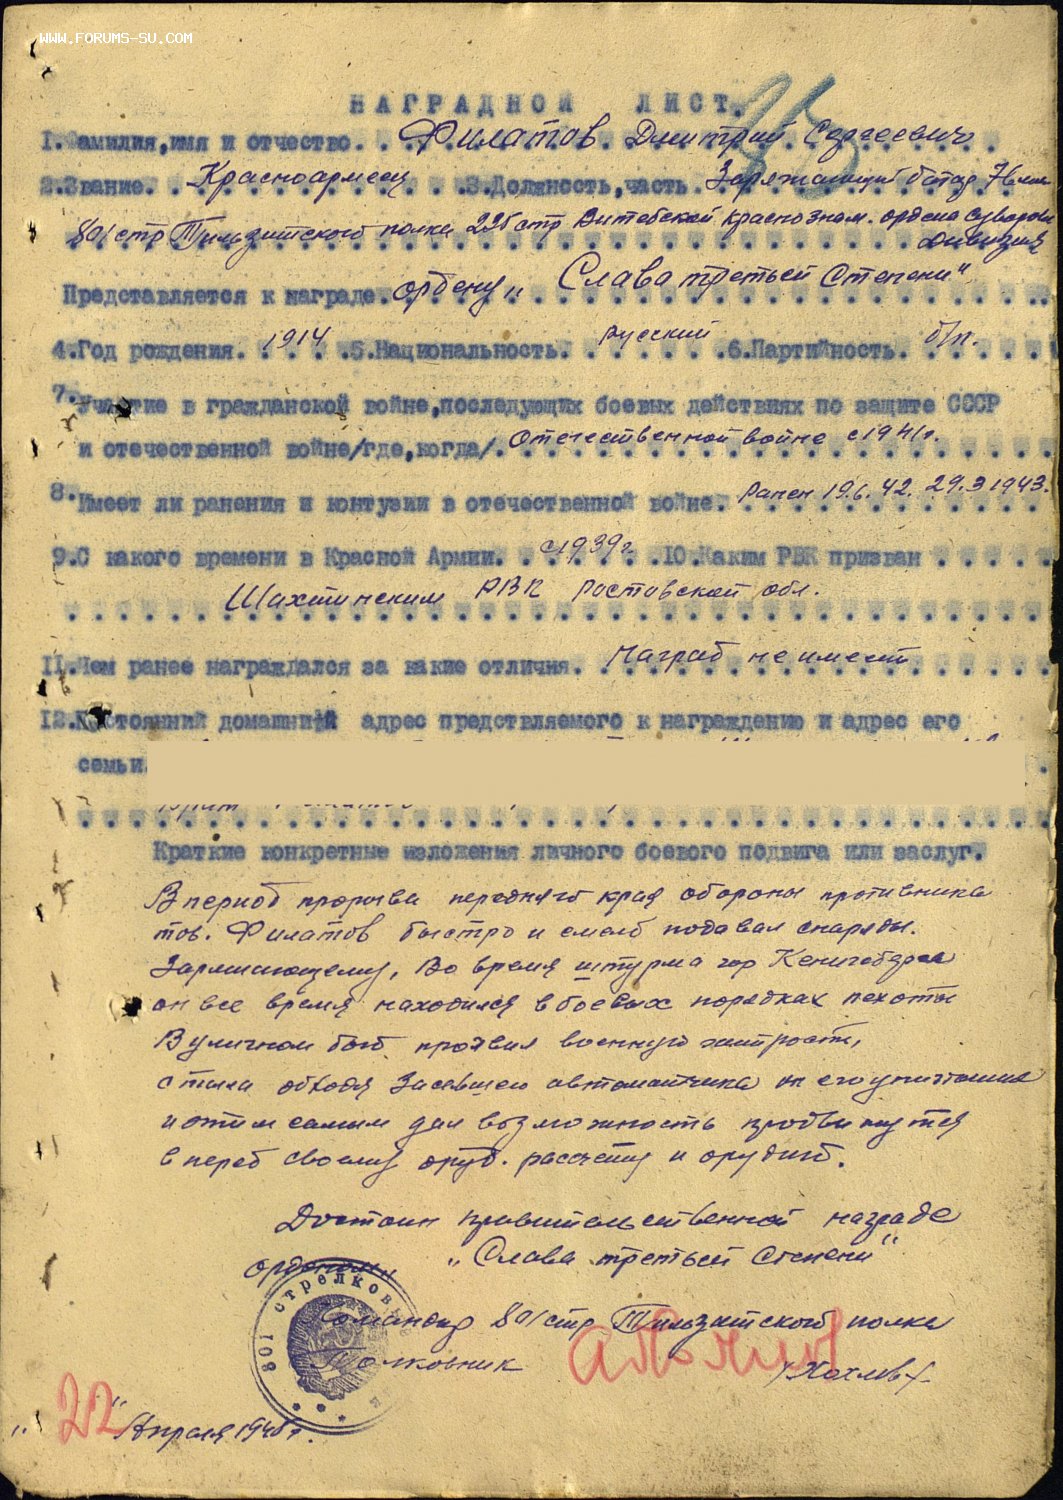 WWW.FORUMS-SU.COM
НАГРАДНОЙ ЛИСТ.
1.Фамилия,имя и отчество. Филатов Дмитрий Сергеевич
2.Звание. Красноармеец 3.Должность,часть Заряжающий батар 76 мм
801 стр Тильзитского полка 235 стр Витебской краснознам. ордена Суворова
дивизия
Представляется к награде. ордену „Слава третьей степени"
4.Год рождения. 1914 5.Национальность. русский 6.Партийность. б/п.
7.Участие в гражданской войне,последующих боевых действиях по защите СССР
и отечественной войне/где,когда/. Отечественной войне с 1941г.
8.Имеет ли ранения и контузии в отечественной войне. Ранен 19.6.42. 29.3 1943.
9.С какого времени в Красной Армии. с 1939г. 10.Каким РВК призван
Шахтинским РВК Ростовской обл.
11.Чем ранее награждался за какие отличия. Наград не имеет
12.Постоянний домашний адрес предствляемого к награждению и адрес его
семьи.
Краткие конкретные изложения личного боевого подвига или заслуг.
В период прорыва переднего края обороны противника
тов. Филатов быстро и смело подавал снаряды.
Заряжающему, Во время штурма гор Кенигсберга
он все время находился в боевых порядках пехоты
В уличном бою проявил военную хитрость,
с тыла обходя засевшего автоматчика он его уничтожил
и этим самим дал возможность продвинутся
вперед своему оруд. рассчету и орудию.
Достоин правительственной награде
орденом „Слава третьей степени"
Командир 801 стр Тильзитского полка
Полковник /Хохлов/.
801 стрелков
„22" Апреля 1945г.